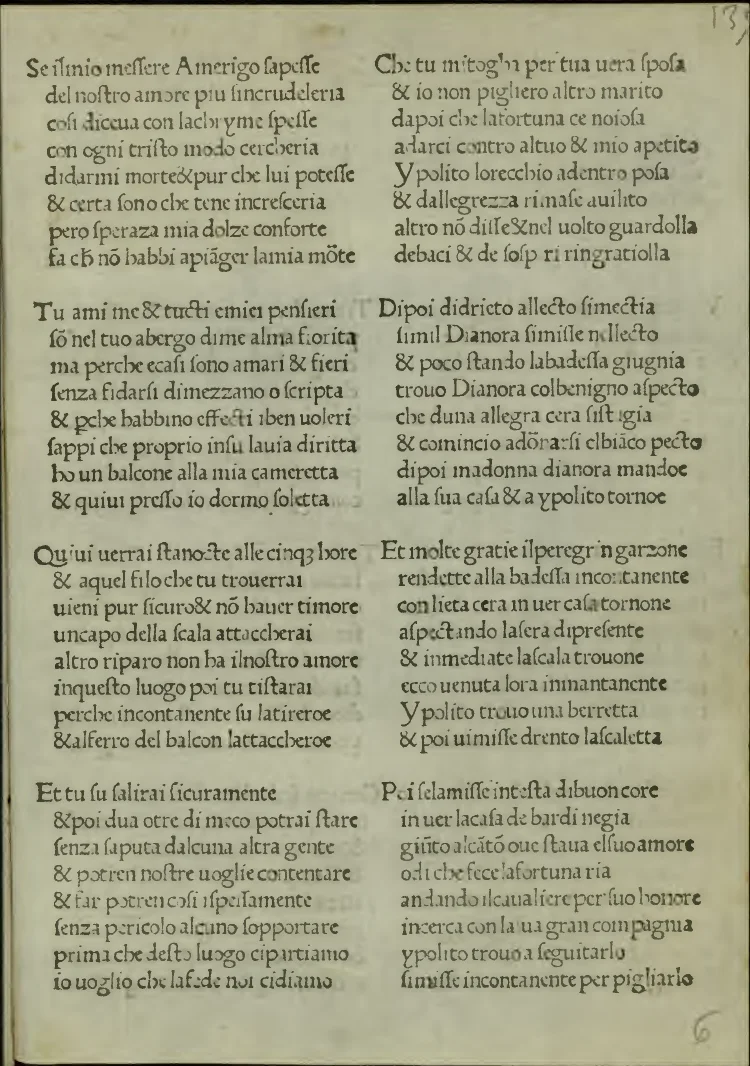 13
Se ilmio meſſere Amerigo ſapeſſe
del noſtro amore piu ſincrudeleria
coſi diceua con lachryme ſpeſſe
con ogni triſto modo cercheria
didarmi morte&pur che lui poteſſe
& certa ſono che tene increſceria
pero ſperaza mia dolze conforte
fa cħ nō habbi apiāger lamia mōte
Tu ami me & tucti emiei penſieri
ſō nel tuo abergo dime alma fiorita
ma perche ecaſi ſono amari & fieri
ſenza fidarſi dimezzano o ſcripta
& ꝑche habbino effecti iben uoleri
ſappi che proprio inſu lauia diritta
ho un balcone alla mia cameretta
& quiui preſſo io dormo ſoletta
Quiui uerrai ſtanocte alle cinqꝫ hore
& aquel filo che tu trouerrai
uieni pur ſicuro& nō hauer timore
uncapo della ſcala attaccherai
altro riparo non ha ilnoſtro amore
inqueſto luogo poi tu tiſtarai
perche incontanente ſu latireroe
&alferro del balcon lattaccheroe
Et tu ſu ſalirai ſicuramente
&poi dua otre di meco potrai ſtare
ſenza ſaputa dalcuna altra gente
& potren noſtre uoglie contentare
& far potren coſi iſpeſſamente
ſenza pericolo alcuno ſopportare
prima che deſto luogo cipartiamo
io uoglio che lafede noi cidiamo
Che tu mitoghi per tua uera ſpoſa
& io non pigliero altro marito
dapoi che lafortuna ce noioſa
adarci contro altuo & mio apetito
Ypolito lorecchio adentro poſa
& dallegrezza rimaſe auilito
altro nō diſſe&nel uolto guardolla
debaci & de ſoſpiri ringratiolla
Dipoi didrieto allecto ſimectia
ſimil Dianora ſimiſſe nellecto
& poco ſtando labadeſſa giugnia
trouo Dianora colbenigno aſpecto
che duna allegra cera ſiſtigia
& comincio adōrarſi elbiāco pecto
dipoi madonna dianora mandoe
alla ſua caſa & a ypolito tornoe
Et molte gratie ilperegrin garzone
rendette alla badeſſa incontanente
con lieta cera in uer caſa tornone
aſpectando laſera dipreſente
& inmediate laſcala trouone
ecco uenuta lora inmantanente
Ypolito trouo una berretta
& poi uimiſſe drento laſcaletta
Poi ſelamiſſe inteſta dibuon core
in uer lacaſa de bardi negia
giūto alcātō oue ſtaua elſuo amore
odi che fece lafortuna ria
andando ilcaualiere per ſuo honore
incerca con la ua gran compagnia
ypolito trouo a ſeguitarlo
ſimiſſe incontanente per pigliarlo
6